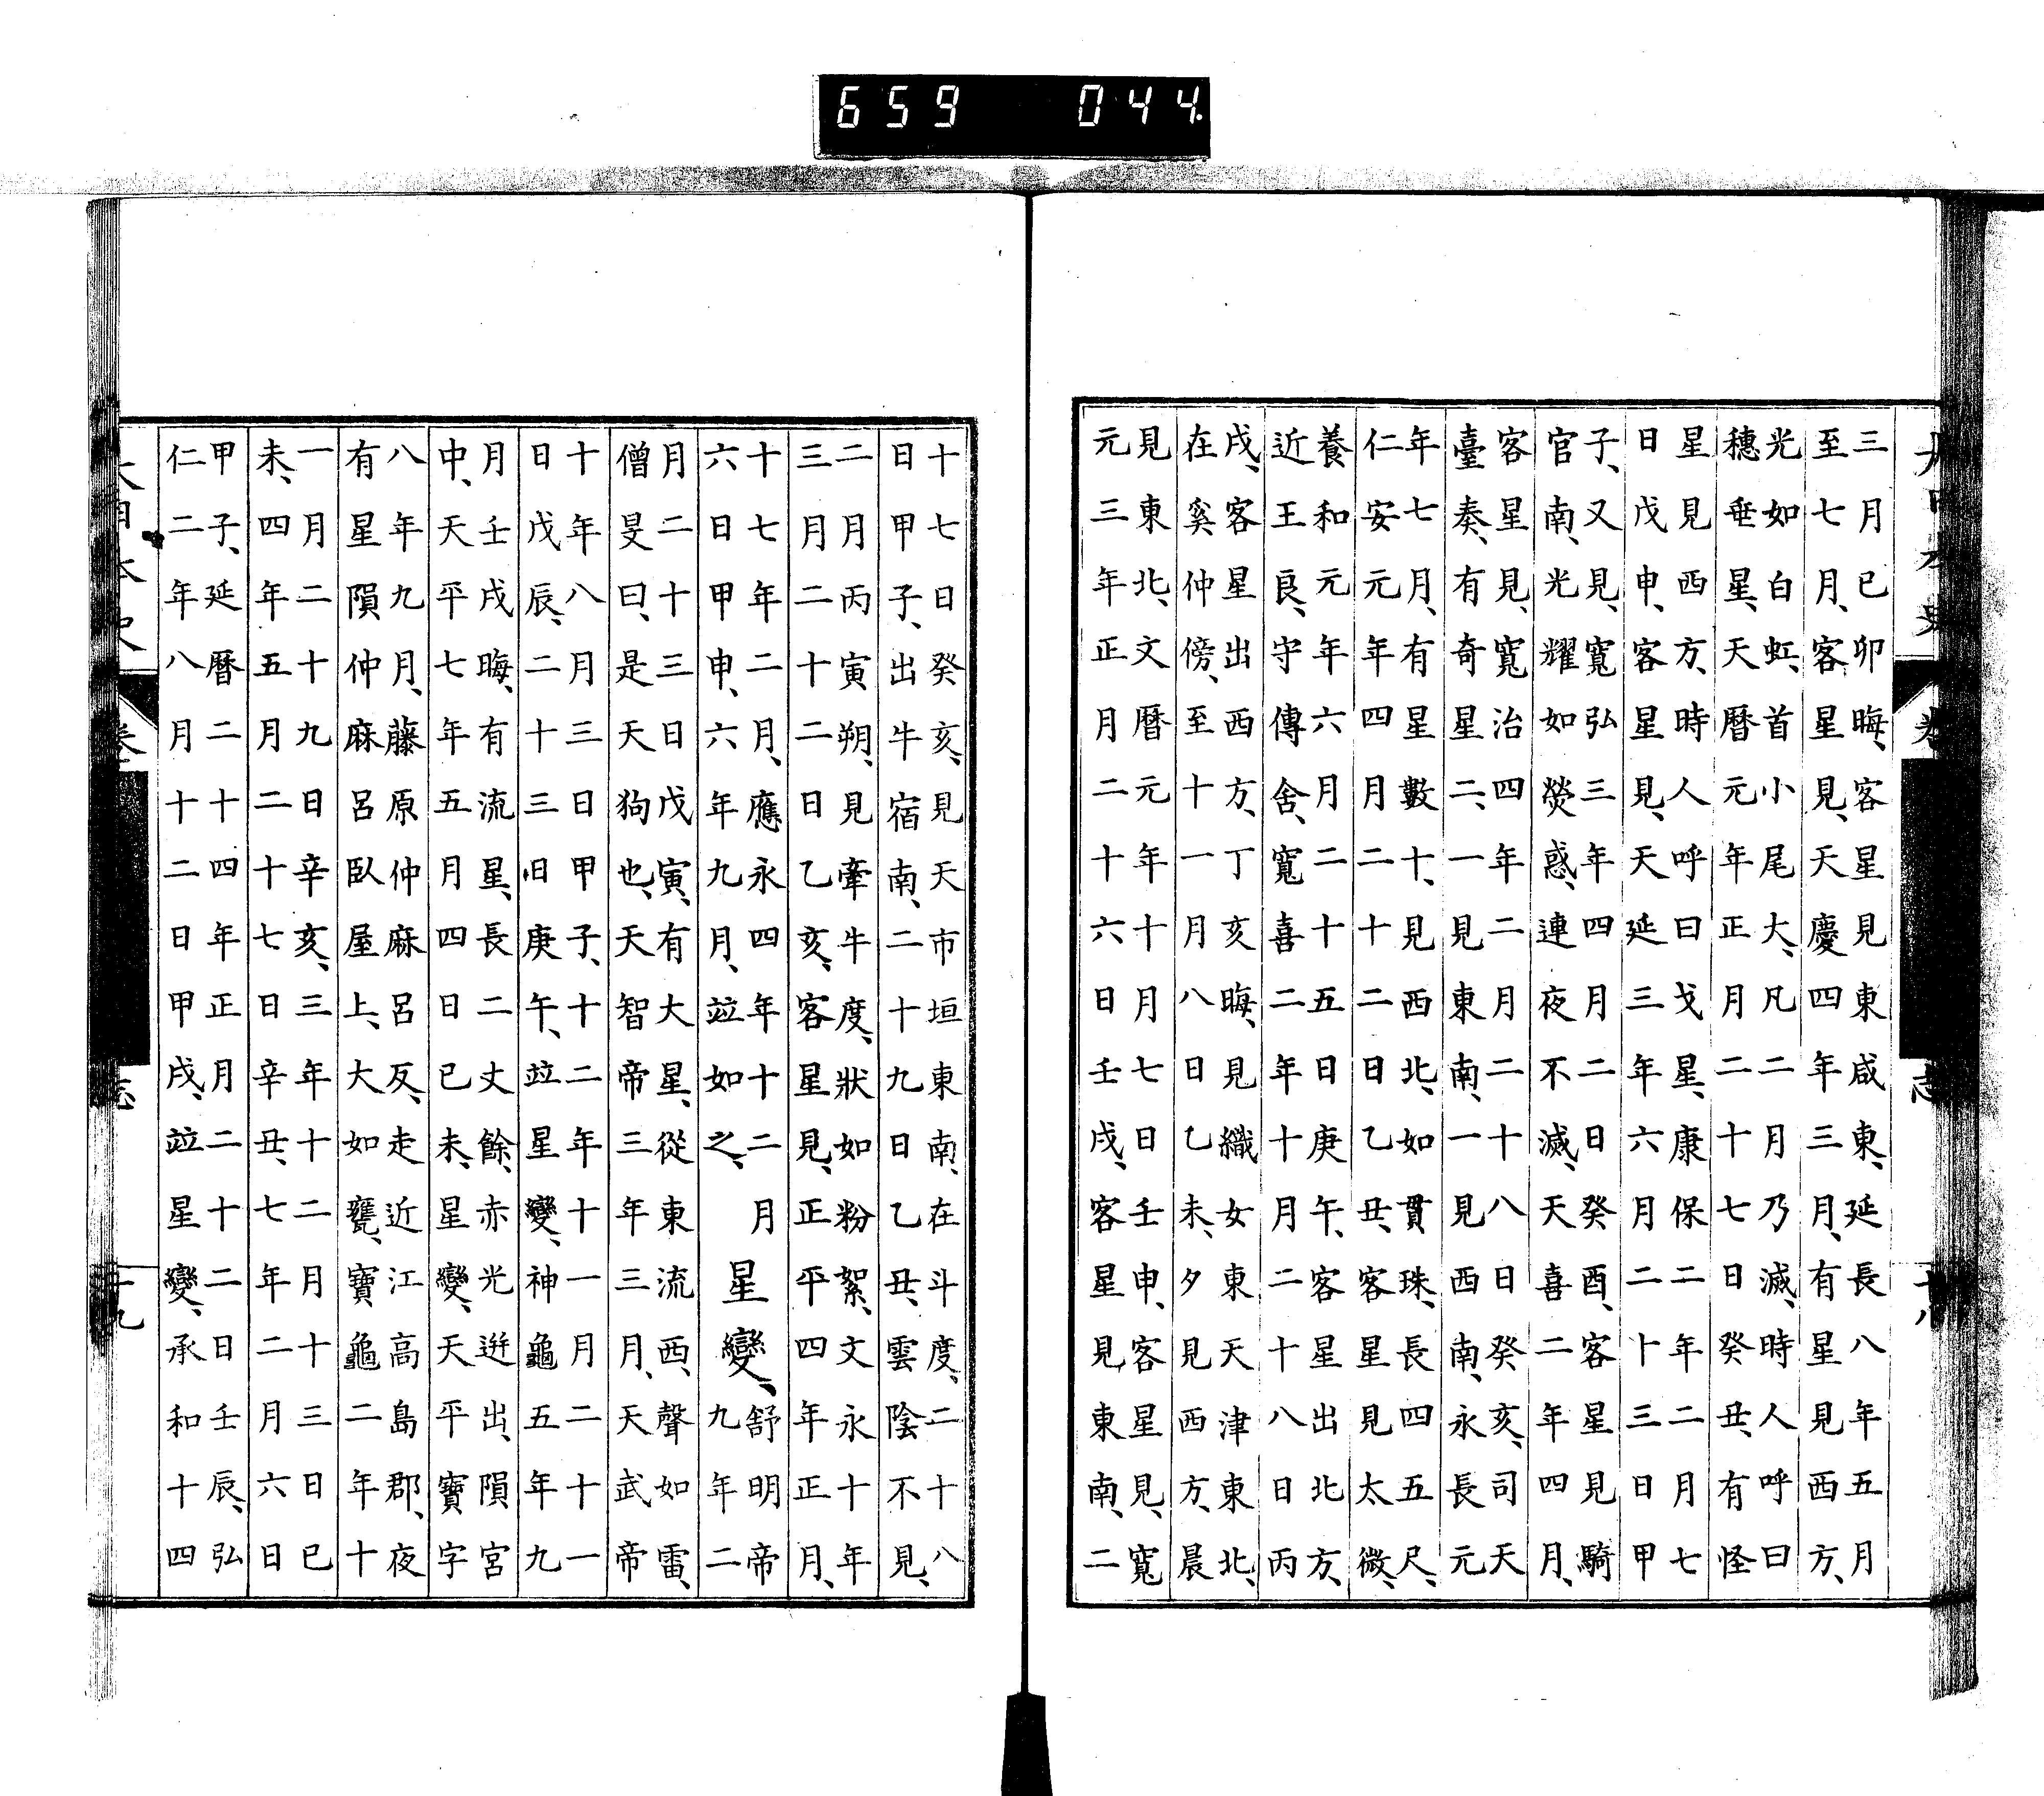 659 044.
三月已卯晦、客星見東咸東、延長八年五月
至七月、客星見、天慶四年三月、有星見西方、
光如白虹、首小尾大、凡二月乃滅、時人呼曰
穗垂星、天曆元年正月二十七日癸丑、有怪
星見西方、時人呼曰戈星、康保二年二月七
日戊申、客星見、天延三年六月二十三日甲
子、又見、寬弘三年四月二日癸酉、客星見騎
官南、光耀如熒惑、連夜不滅、天喜二年四月、
客星見、寬治四年二月二十八日癸亥、司天
臺奏、有奇星二、一見東南、一見西南、永長元
年七月、有星數十、見西北、如貫珠、長四五尺、
仁安元年四月二十二日乙丑、客星見太微、
養和元年六月二十五日庚午、客星出北方、
近王良、守傳舍、寬喜二年十月二十八日丙
戌、客星出西方、丁亥晦、見織女東天津東北、
在奚仲傍、至十一月八日乙未、夕見西方、晨
見東北、文曆元年十月七日壬申、客星見、寬
元三年正月二十六日壬戌、客星見東南、二
十八
十七日癸亥、見天市垣東南、在斗度、二十八
日甲子、出牛宿南、二十九日乙丑、雲陰不見、
二月丙寅朔、見牽牛度、狀如粉絮、文永十年
三月二十二日乙亥、客星見、正平四年正月、
十七年二月、應永四年十二月
六日甲申、六年九月、竝如之、
星變、
舒明帝
九年二
月二十三日戊寅、有大星、從東流西、聲如雷、
僧旻曰、是天狗也、天智帝三年三月、天武帝
十年八月三日甲子、十二年十一月二十一
日戊辰、二十三日庚午、竝星變、神龜五年九
月壬戌晦、有流星、長二丈餘、赤光迸出、隕宮
中、天平七年五月四日已未、星變、天平寶字
八年九月、藤原仲麻呂反、走近江高島郡、夜
有星隕仲麻呂臥屋上、大如甕、寶龜二年十
一月二十九日辛亥、三年十二月十三日已
未、四年五月二十七日辛丑、七年二月六日
甲子、延曆二十四年正月二十二日壬辰、弘
仁二年八月十二日甲戌、竝星變、承和十四